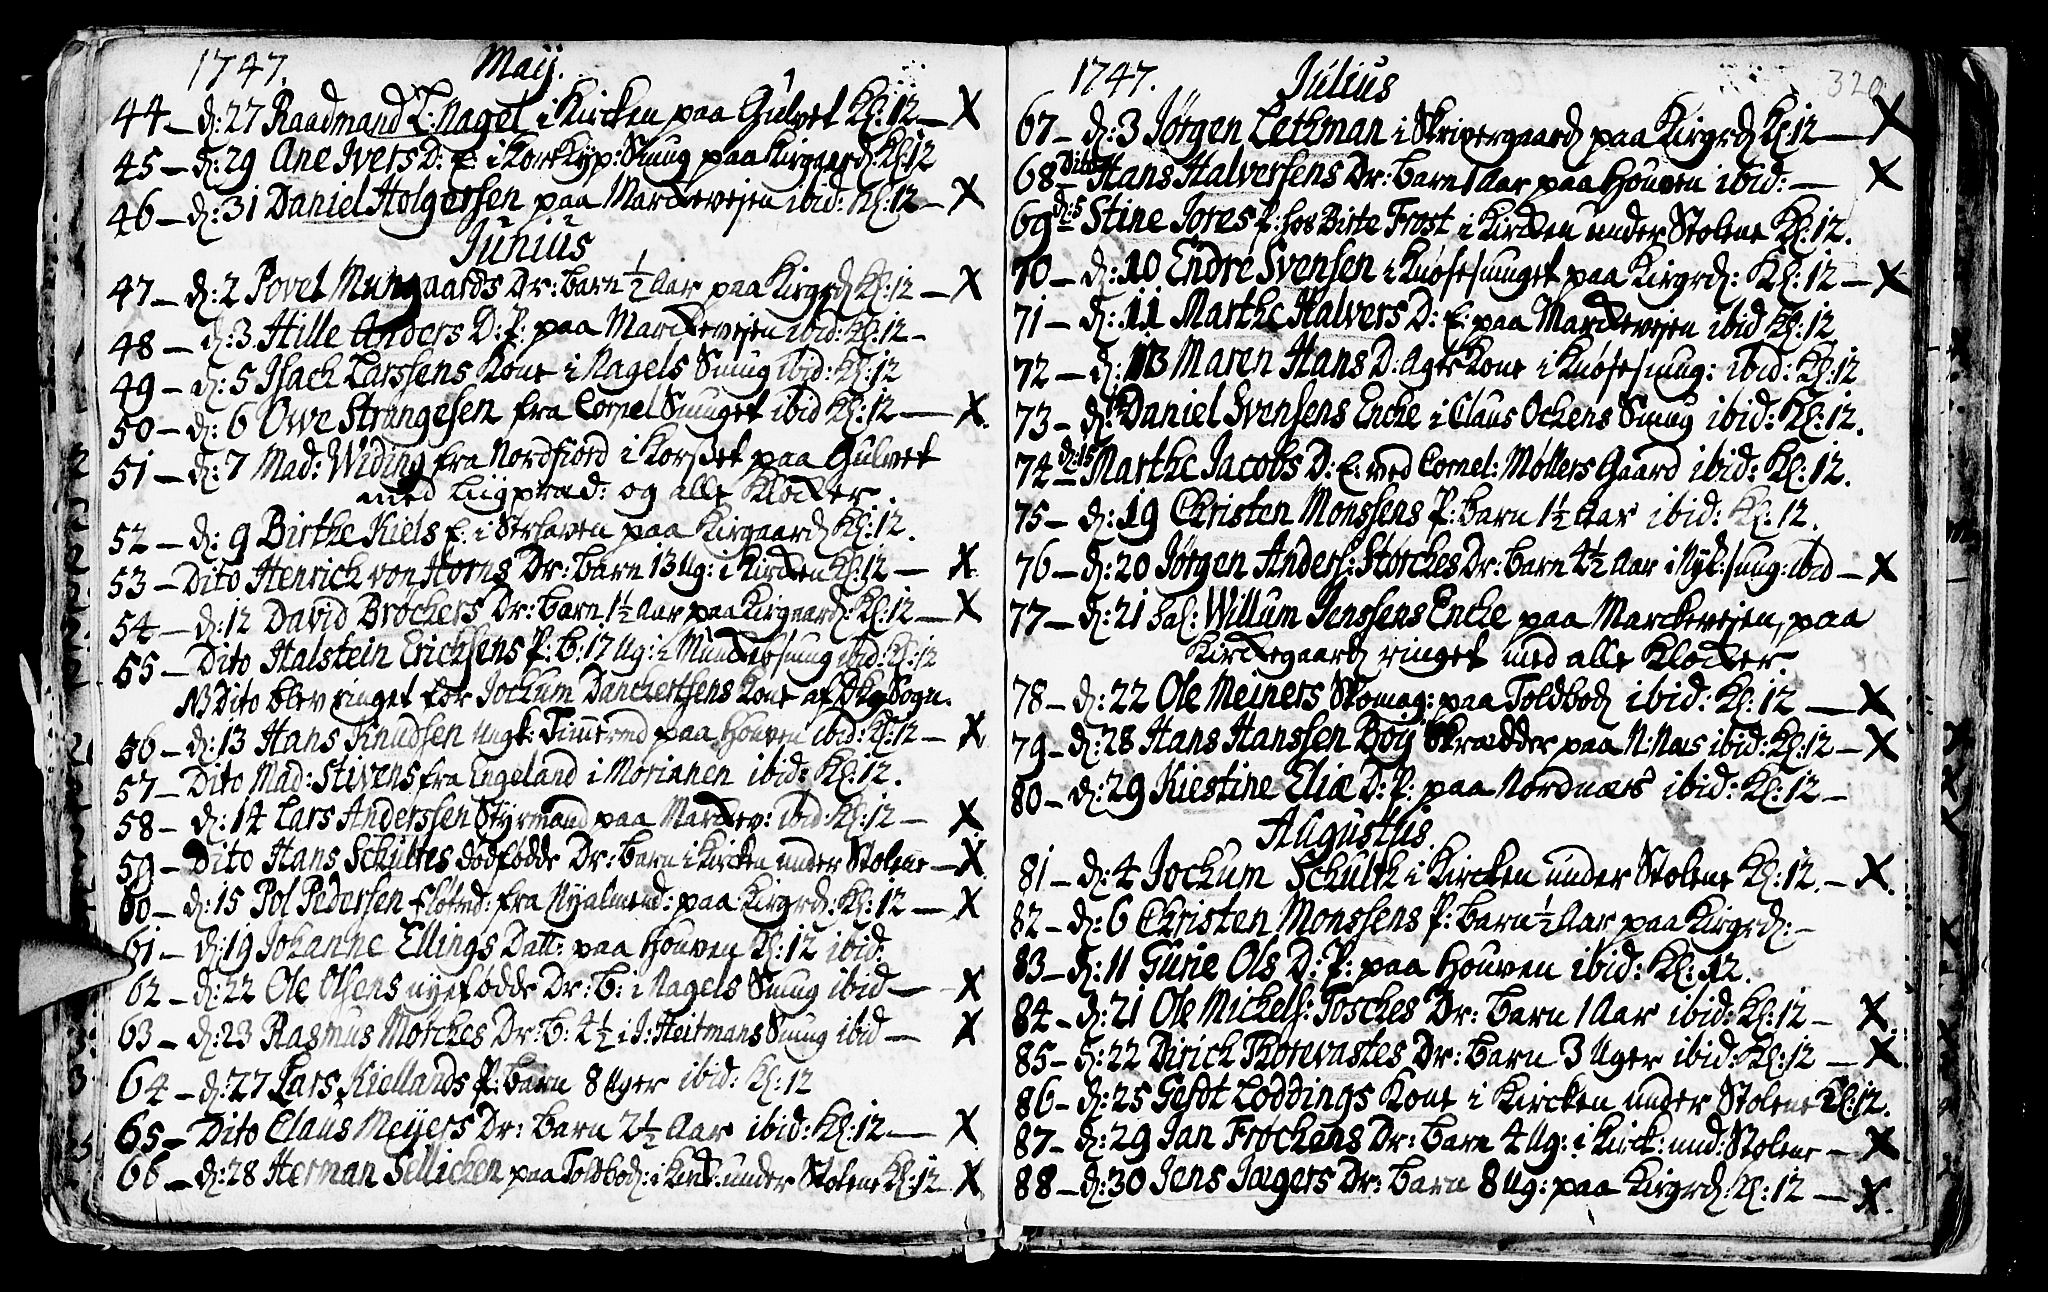 1747. Maij.
44 - d: 27 Raadmand L: Nagel i Kircken paa Gulvet Kl: 12 - X
45 - d: 29 Ane Ivers D: E: i KorsKyp: Smug paa Kirgaard: Kl: 12
46 - d: 31 Daniel Holgersen paa Marckevejen ibid: Kl: 12 - X
Junius
47 - d: 2 Povel Mungaards Dr: barn ½ Aar paa Kirgrd Kl: 12 - X
48 - d: 3 Hille Anders D: P: paa Marckevejen ibid: Kl: 12 -
49 - d: 5 Isach Larssens Kone i Nagels Smug ibid: Kl: 12
50 - d: 6 Owe Strangesen fra Cornel Smuget ibid Kl: 12 - X.
51 - d: 7 Mad: Widing fra Nordfiord i Korsset paa Gulvet
med Liigpræd: og alle Klocker.
52 - d: 9 Birthe Niels E: i paa Kirgaard Kl: 12.
53 - Dito Henrich von Horns Dr: barn 13 Ug: i Kircken Kl: 12 - X.
54 - d: 12 David Bröckers Dr: barn 1½ Aar paa Kirgaard: Kl: 12 - X
55 - Dito Halstein Erichsens P: B: 17 Ug: i Munckesmug ibid: Kl: 12
NB Dito blev ringet for Jochum Danckertsens Kone af Sogn.
56 - d: 13 Hans Knudsen ungk: paa Houven ibid: Kl: 12 - X
57 - Dito Mad: Stivens fra Engeland i Morianen ibid: Kl: 12.
58 - d: 14 Lars Anderssen Styrmand paa Marckev: ibid: Kl: 12 - X
59 - Dito Hans Schultes dödfödde Dr: barn i Kircken under Stolene - X.
60 - d: 15 Pol Pedersen fra Nyalmend: paa Kirgrd: Kl: 12 - X
61 - d: 19 Johanne Ellings Datt: paa Houven Kl: 12 ibid:
62 - d: 22 Ole Olsens nyefödde Dr: B: i Nagels Smug ibid - X
63 - d: 23 Rasmus Morckes Dr: B: 4½ i J: Heitmans Smug ibid - X
64 - d: 27 Lars Kiellands P: barn 8 Uger ibid: Kl: 12
65 - Dito Claus Meyers Dr: barn 2½ Aar ibid: Kl: 12 - X
66 - d: 28 Herman Sellicken paa Toldbod: i Kirck: under Stolene Kl: 12 X.
1747. Julius 320
67 - d: 3 Jörgen Lethman i Skrivergaard paa Kirgrd Kl: 12 - X
68 - Dito Hans Halvorsens Dr: barn 1 Aar paa Houven ibid: - X
69 - d: 5 Stine Jores P: hos Birte Frost i Kircken under Stolene Kl: 12.
70 - d: 10 Endre Svensen i Knösesmuget paa Kirgrd: Kl: 12 - X
71 - d: 11 Marthe Halvers D: E: paa Marckevejen ibid Kl: 12
72 - d: 13 Maren Hans D: Kone i Knösesmug: ibid: Kl: 12
73 - d: Daniel Svensens Encke i Claus Ockens Smug ibid: Kl: 12.
74 - d: 15 Marthe Jacobs D: E: ved Cornel: Möllers Gaard ibid: Kl: 12.
75 - d: 19 Christen Monssens P: barn 1½ Aar ibid: Kl: 12.
76 - d: 20 Jörgen Anders: Störckes Dr: barn 4½ Aar i Nyk: smug: ibid - X
77 - d: 21 Sal: Willum Jenssens Encke paa Marckevejen, paa
Kirckegaard ringet med alle Klocker.
78 - d: 22 Ole Meiners Skomag: paa Toldbod ibid: Kl: 12 - X
79 - d: 28 Hans Hanssen Böij Skrædder paa N: Næs ibid: Kl: 12 - X
80 - d: 29 Kiestine Eliæ D: P: paa Nordnæs ibid: Kl: 12 -
Augustus.
81 - d: 4 Jochum Schultz i Kircken under Stolene Kl: 12. - X.
82 - d: 6 Christen Monssens P: barn ½ Aar paa Kirgrd: -
83 - d: 11 Gurie Ols D: P: paa Houven ibid: Kl: 12.
84 - d: 21 Ole Mickels: ToschesBr: barn 1 Aar ibid: Kl: 12 - X.
85 - d: 22 Dirich Thorevastes Dr: barn 3 Uger ibid: Kl: 12 - X
86 - d: 25 Gerdt Loddings Kone i Kircken under Stolene Kl: 12.
87 - d: 29 Jan Frockens Dr: barn 4 Ug: i Kirck: und: Stolene - X
88 - d: 30 Jens Jægers Dr: barn 8 Ug: paa Kirgrd: Kl: 12 - X.